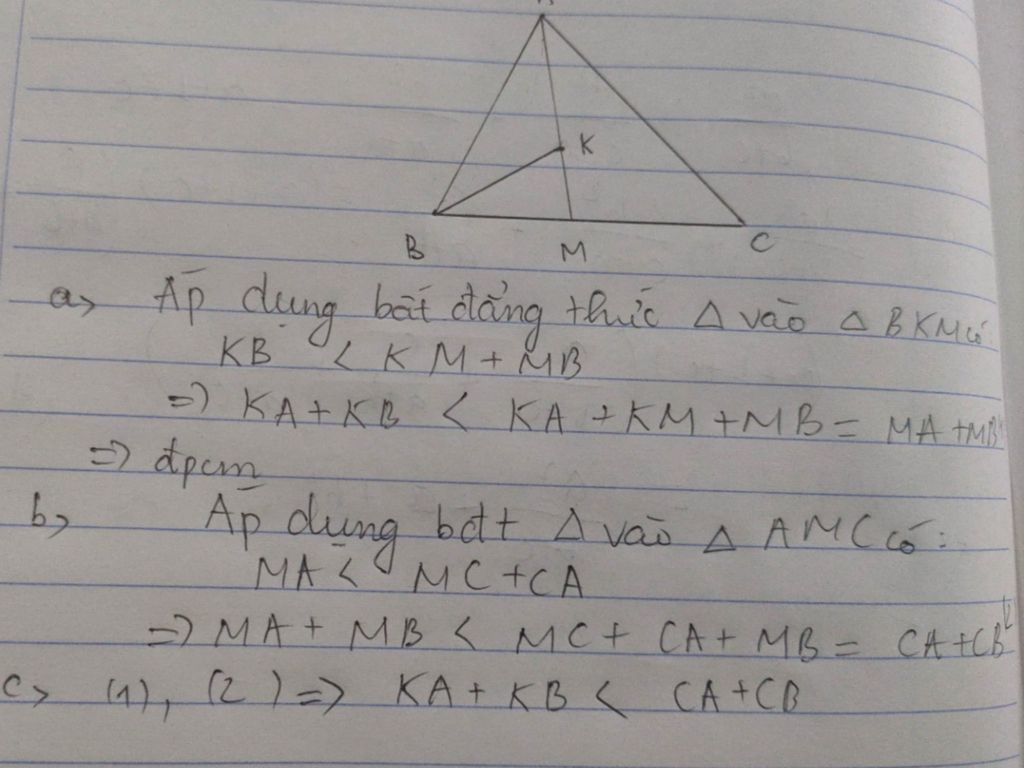 A
K
B M C
a> Áp dụng bất đẳng thức Δ vào Δ BKM có:
KB < KM + MB
=> KA + KB < KA + KM + MB = MA + MB
=> đpcm
b> Áp dụng bđt Δ vào Δ AMC có:
MA < MC + CA
=> MA + MB < MC + CA + MB = CA + CB
c> (1), (2) => KA + KB < CA + CB